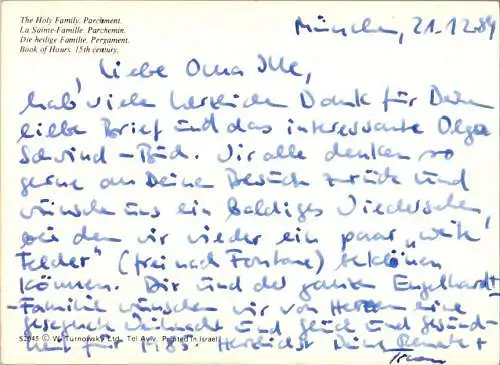 The Holy Family. Parchment.
La Sainte-Famille. Parchemin.
Die heilige Familie. Pergament.
Book of Hours. 15th century.
München, 21.12.84
Liebe Oma Ille,
hab' vielen herzlichen Dank für Deinen
lieben Brief und das interessante Olga
Schwind-Buch. Wir alle denken so
gerne an Deinen Besuch zurück und
wünschen uns ein baldiges Wiedersehen,
bei dem wir wieder ein paar "weite
Felder" (frei nach Fontane) beklönen
können. Dir und der ganzen Engelhardt-
-Familie wünschen wir von Herzen eine
gesegnete Weihnacht und Glück und Gesund-
heit für 1985. Herzlichst Deine Renate +
52045 © W. Turnowsky Ltd., Tel Aviv, Printed in Israel